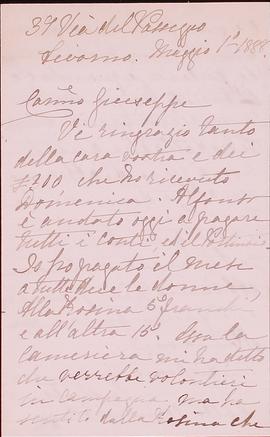 39 Via del Passeggio
Livorno. Maggio 1º 1888.
Carmo Giuseppe
Vi ringrazio tanto
della cara vostra e dei
£ 200 che ho ricevuto
Domenica. Alfonso
è andato oggi a pagare
tutti i conti ed il
Io ho pagato il mese
a tutte due le donne,
alla Rosina 5 franchi
e all'altra 15. Ora la
cameriera mi ha detto
che verrebbe volontieri
in campagna, ma ha
sentito dalla Rosina che